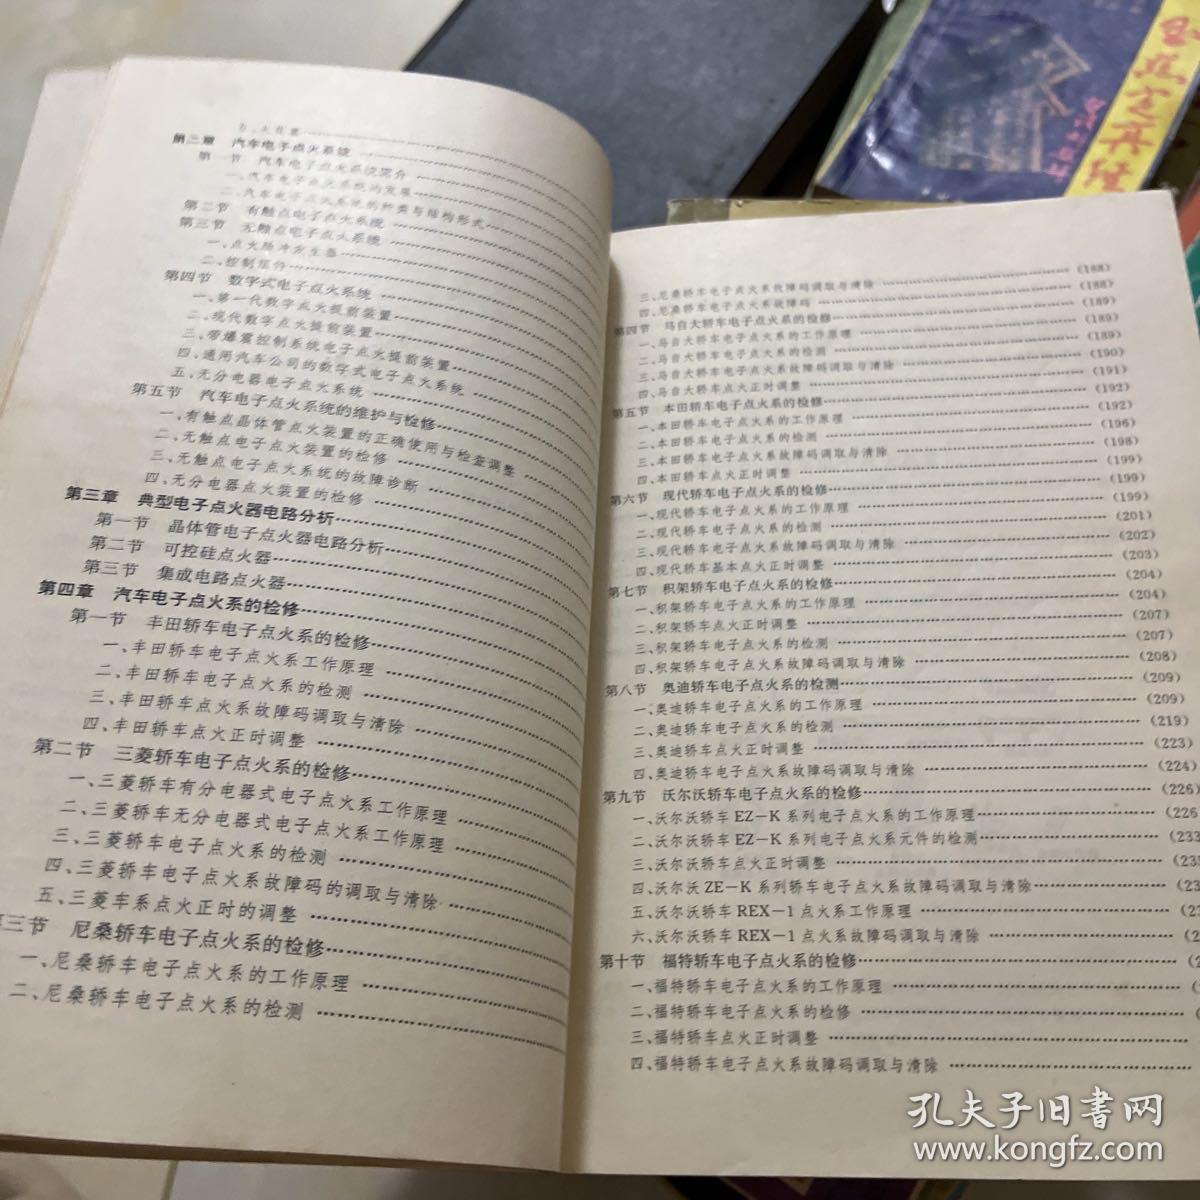 五、火花塞
第二章 汽车电子点火系统
第一节 汽车电子点火系统简介
一、汽车电子点火系统的发展
二、汽车电子点火系统的种类与结构形式
第二节 有触点电子点火系统
第三节 无触点电子点火系统
一、点火脉冲发生器
二、控制组件
第四节 数字式电子点火系统
一、第一代数字点火提前装置
二、现代数字点火提前装置
三、带爆震控制系统电子点火提前装置
四、通用汽车公司的数字式电子点火系统
五、无分电器电子点火系统
第五节 汽车电子点火系统的维护与检修
一、有触点晶体管点火装置的正确使用与检查调整
二、无触点电子点火装置的检修
三、无触点电子点火系统的故障诊断
四、无分电器点火装置的检修
第三章 典型电子点火器电路分析
第一节 晶体管电子点火器电路分析
第二节 可控硅点火器
第三节 集成电路点火器
第四章 汽车电子点火系的检修
第一节 丰田轿车电子点火系的检修
一、丰田轿车电子点火系工作原理
二、丰田轿车电子点火系的检测
三、丰田轿车点火系故障码调取与清除
四、丰田轿车点火正时调整
第二节 三菱轿车电子点火系的检修
一、三菱轿车有分电器式电子点火系工作原理
二、三菱轿车无分电器式电子点火系工作原理
三、三菱轿车电子点火系的检测
四、三菱轿车电子点火系故障码的调取与清除
五、三菱车系点火正时的调整
三节 尼桑轿车电子点火系的检修
一、尼桑轿车电子点火系的工作原理
二、尼桑轿车电子点火系的检测
三、尼桑轿车电子点火系故障码调取与清除 (188)
四、尼桑轿车电子点火系故障码 (188)
第四节 马自大轿车电子点火系的检修 (189)
一、马自大轿车电子点火系的工作原理 (189)
二、马自大轿车电子点火系的检测 (189)
三、马自大轿车电子点火系故障码调取与清除 (190)
四、马自大轿车点火正时调整 (191)
第五节 本田轿车电子点火系的检修 (192)
一、本田轿车电子点火系的工作原理 (192)
二、本田轿车电子点火系的检测 (196)
三、本田轿车电子点火系故障码调取与清除 (198)
四、本田轿车点火正时调整 (199)
第六节 现代轿车电子点火系的检修 (199)
一、现代轿车电子点火系的工作原理 (199)
二、现代轿车电子点火系的检测 (201)
三、现代轿车电子点火系故障码调取与清除 (202)
四、现代轿车基本点火正时调整 (203)
第七节 积架轿车电子点火系的检修 (204)
一、积架轿车电子点火系的工作原理 (204)
二、积架轿车点火正时调整 (207)
三、积架轿车电子点火系的检测 (207)
四、积架轿车电子点火系故障码调取与清除 (208)
第八节 奥迪轿车电子点火系的检测 (209)
一、奥迪轿车电子点火系的工作原理 (209)
二、奥迪轿车电子点火系的检测 (219)
三、奥迪轿车点火正时调整 (223)
四、奥迪轿车电子点火系故障码调取与清除 (224)
第九节 沃尔沃轿车电子点火系的检修 (226)
一、沃尔沃轿车EZ-K系列电子点火系的工作原理 (226
二、沃尔沃轿车EZ-K系列电子点火系元件的检测 (233
三、沃尔沃轿车点火正时调整 (23
四、沃尔沃ZE-K系列轿车电子点火系故障码调取与清除 (23
五、沃尔沃轿车REX-1点火系工作原理 (2
六、沃尔沃轿车REX-1点火系故障码调取与清除 (2
第十节 福特轿车电子点火系的检修 (2
一、福特轿车电子点火系的工作原理
二、福特轿车电子点火系的检修
三、福特轿车点火正时调整
四、福特轿车电子点火系故障码调取与清除
孔夫子旧书网
www.kongfz.com